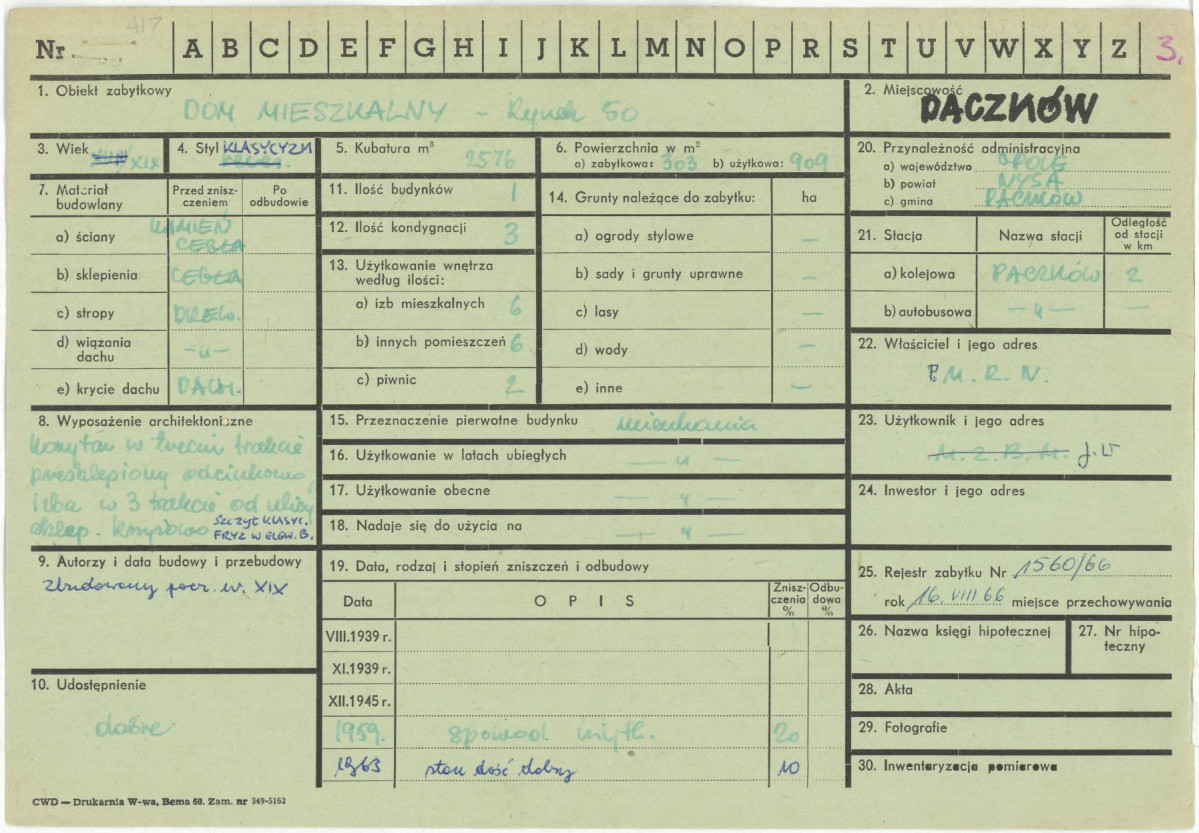 417
Nr. A B C D E F G H I J K L M N O P R S T U V W X Y Z 3.
1. Obiekt zabytkowy
DOM MIESZKALNY – Rynek 50
2. Miejscowość
PACZKÓW
3. Wiek
XIX
4. Styl KLASYCYZM
5. Kubatura m³
2576
6. Powierzchnia w m²
a) zabytkowa: 303 b) użytkowa: 909
20. Przynależność administracyjna
a) województwo OPOLE
b) powiat NYSA
c) gmina PACZKÓW
7. Materiał budowlany
Przed zniszczeniem
Po odbudowie
a) ściany KAMIEŃ
CEGŁA
b) sklepienia CEGŁA
c) stropy DREW.
d) wiązania dachu –„–
e) krycie dachu DACH.
11. Ilość budynków 1
12. Ilość kondygnacji 3
13. Użytkowanie wnętrza według ilości:
a) izb mieszkalnych 6
b) innych pomieszczeń 6
c) piwnic 2
14. Grunty należące do zabytku: ha
a) ogrody stylowe –
b) sady i grunty uprawne –
c) lasy –
d) wody –
e) inne –
21. Stacja
Nazwa stacji
Odległość od stacji w km
a) kolejowa PACZKÓW 2
b) autobusowa –„– –
22. Właściciel i jego adres
P.M.R.N.
8. Wyposażenie architektoniczne
Korytarz w trzecim trakcie
przesklepiony odcinkowo,
izba w 3 trakcie od ulicy
sklep. krzyżowo
SZCZYT KLASYC.
FRYZ W ELEW. B.
15. Przeznaczenie pierwotne budynku mieszkania
16. Użytkowanie w latach ubiegłych –„–
17. Użytkowanie obecne –„–
18. Nadaje się do użycia na –„–
23. Użytkownik i jego adres
M.Z.B.M. j.w
24. Inwestor i jego adres
9. Autorzy i data budowy i przebudowy
Zbudowany pocz. w. XIX
19. Data, rodzaj i stopień zniszczeń i odbudowy
Data
OPIS
Zniszczenia %
Odbudowa %
VIII.1939 r.
XI.1939 r.
XII.1945 r.
1959. spowod. użytk. 20
1963 stan dość dobry 10
25. Rejestr zabytku Nr 1560/66
rok 16. VIII 66 miejsce przechowywania
26. Nazwa księgi hipotecznej
27. Nr hipoteczny
28. Akta
29. Fotografie
30. Inwentaryzacja pomiarowa
10. Udostępnienie
dobre
CWD — Drukarnia W-wa, Bema 60. Zam. nr 349-5162